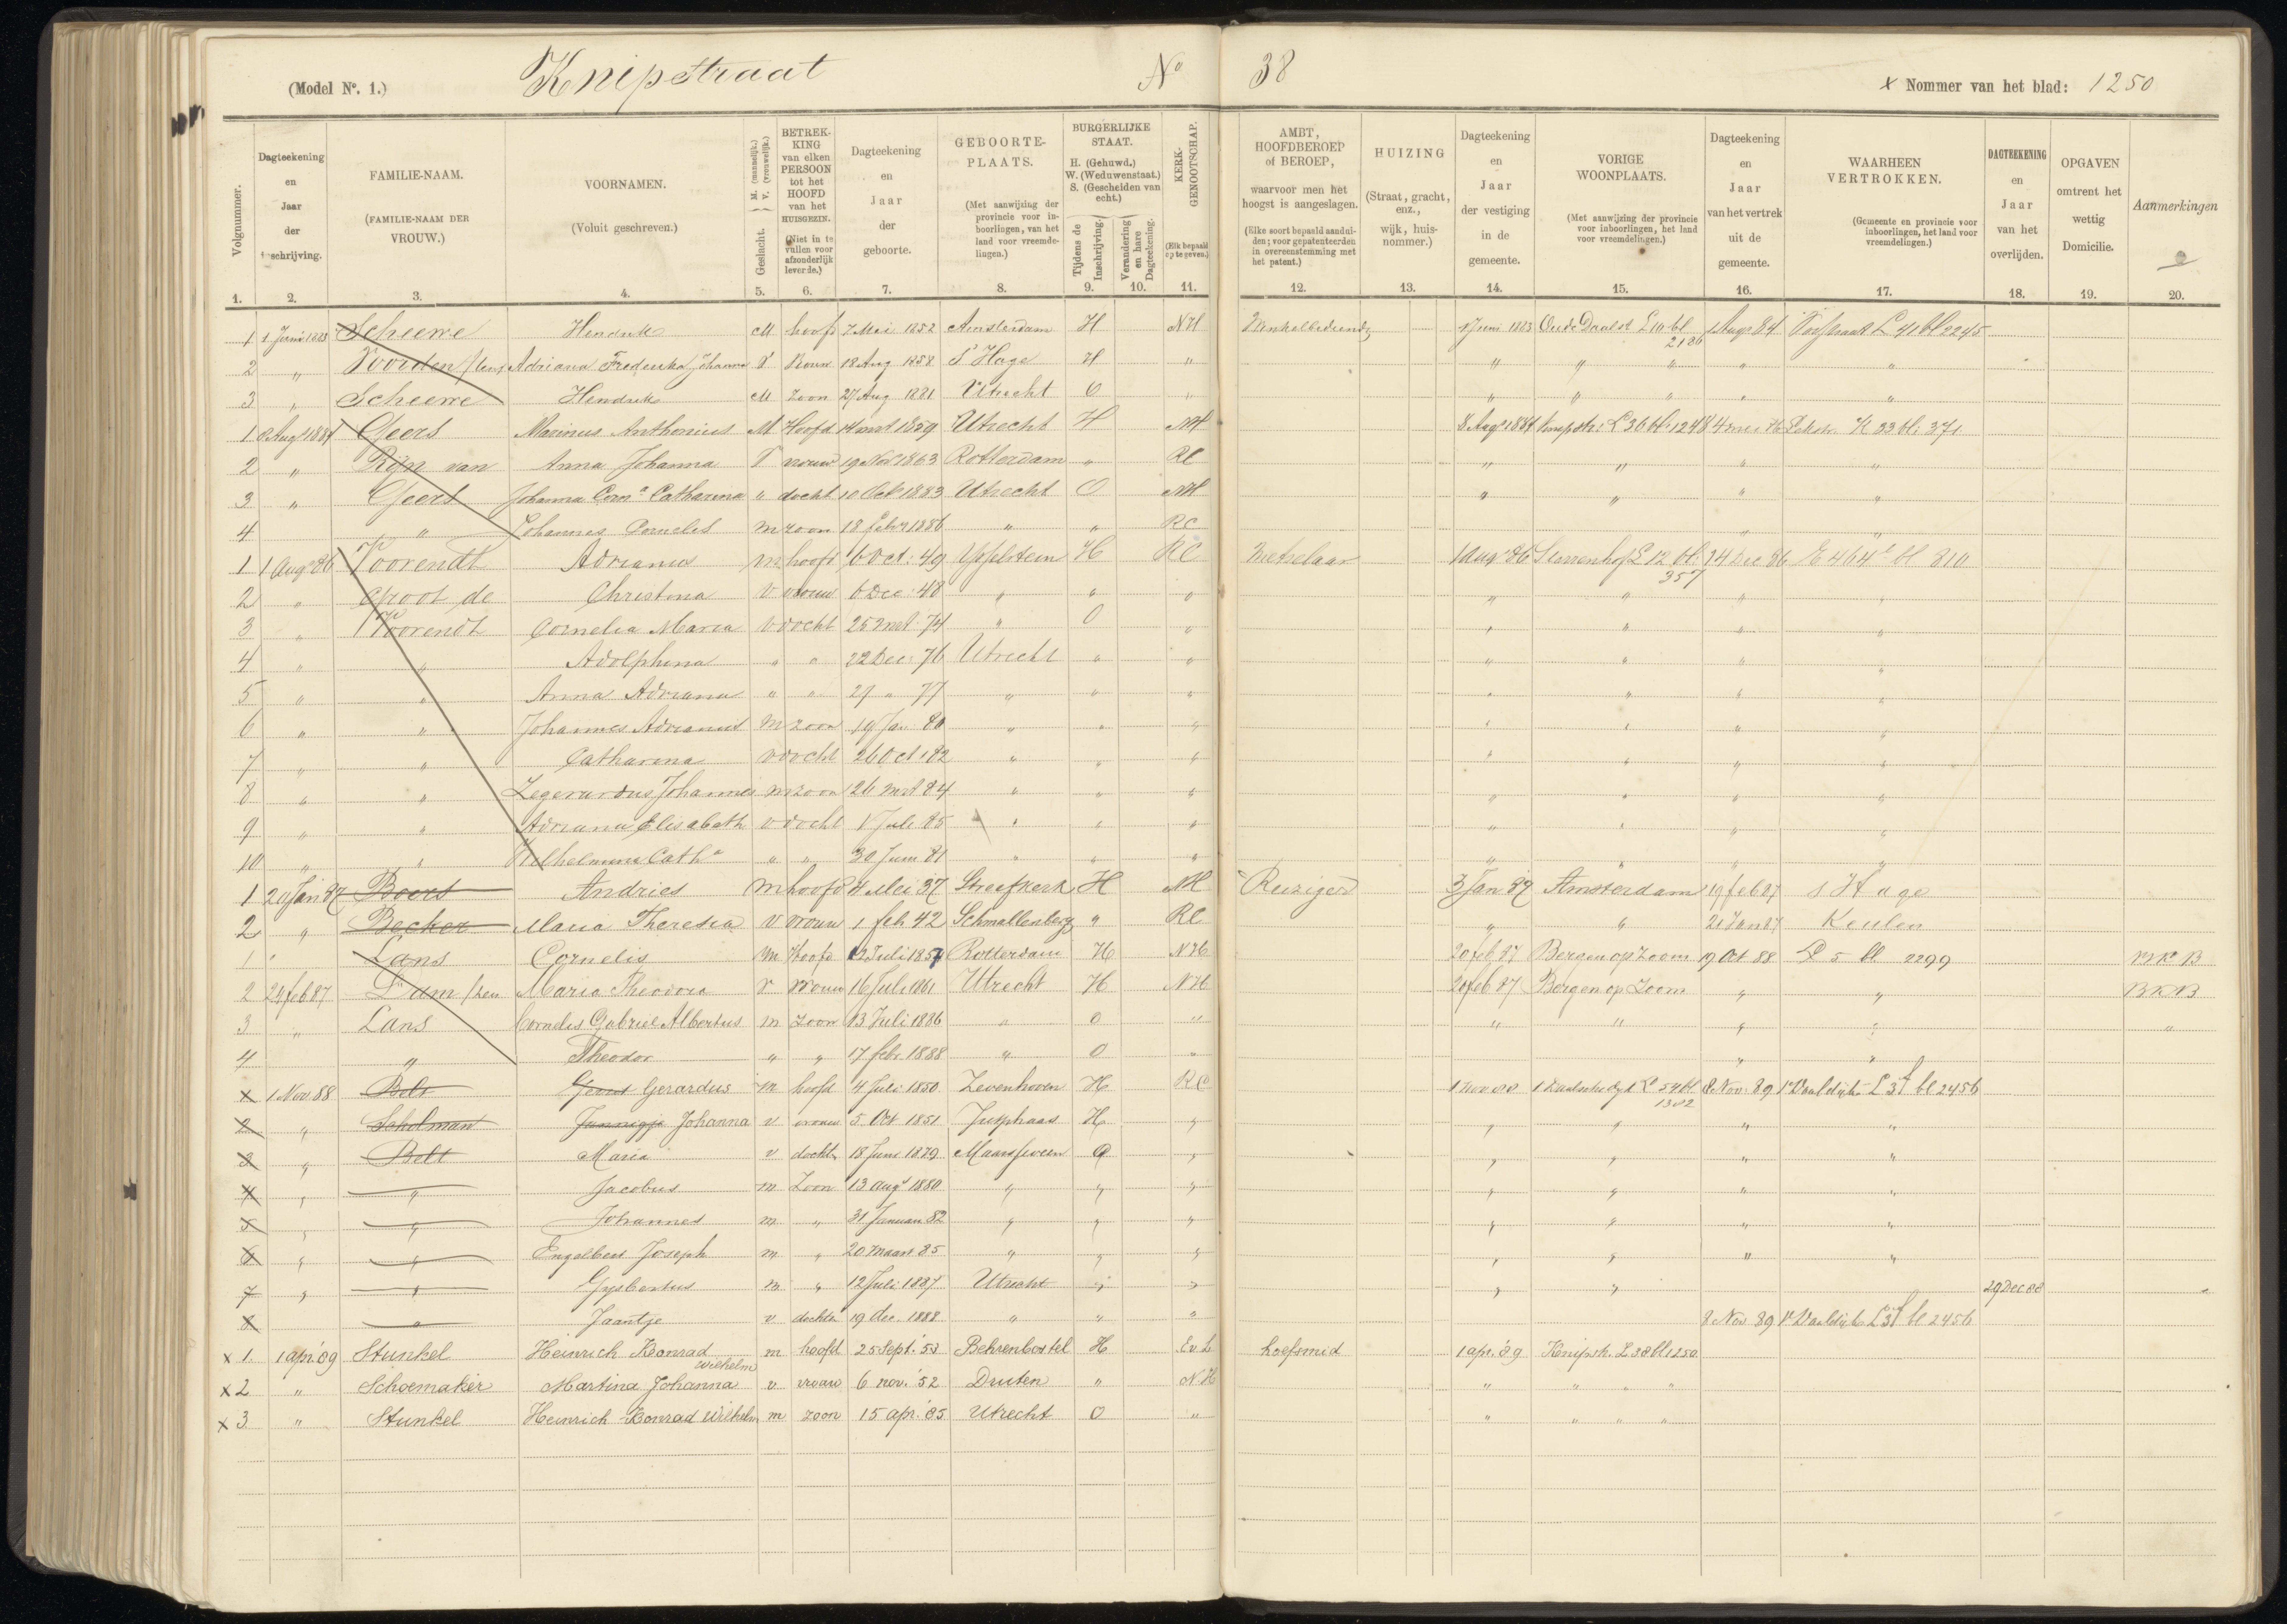 (Model Nº. 1.) Knipstraat Nº 38 x Nommer van het blad: 1250
Volgnummer. Dagteekening en Jaar der inschrijving. FAMILIE-NAAM. (FAMILIE-NAAM DER VROUW.) VOORNAMEN. (Voluit geschreven.) Geslacht. M. (mannelijk.) V. (vrouwelijk.) BETREKKING van elken PERSOON tot het HOOFD van het HUISGEZIN. (Niet in te vullen voor afzonderlijk levende.) Dagteekening en Jaar der geboorte. GEBOORTE-PLAATS. (Met aanwijzing der provincie voor inboorlingen, van het land voor vreemdelingen.) BURGERLIJKE STAAT. H. (Gehuwd.) W. (Weduwenstaat.) S. (Gescheiden van echt.) Tijdens de Inschrijving. Verandering en hare Dagteekening. KERKGENOOTSCHAP. (Elk bepaald op te geven.) AMBT, HOOFDBEROEP of BEROEP, waarvoor men het hoogst is aangeslagen. (Elke soort bepaald aanduiden; voor gepatenteerden in overeenstemming met het patent.) HUIZING (Straat, gracht, enz., wijk, huisnommer.) Dagteekening en Jaar der vestiging in de gemeente. VORIGE WOONPLAATS. (Met aanwijzing der provincie voor inboorlingen, het land voor vreemdelingen.) Dagteekening en Jaar van het vertrek uit de gemeente. WAARHEEN VERTROKKEN. (Gemeente en provincie voor inboorlingen, het land voor vreemdelingen.) DAGTEEKENING en Jaar van het overlijden. OPGAVEN omtrent het wettig Domicilie. Aanmerkingen
1. 2. 3. 4. 5. 6. 7. 8. 9. 10. 11. 12. 13. 14. 15. 16. 17. 18. 19. 20.
1 1 Juni 1883 Scheewe Hendrik M hoofd 7 Mei 1852 Amsterdam H NH Winkelbediende 1 Juni 1883 Oude Daalst L 10 bl 2186 1 Aug 84 L 41 bl 2245
2 " Voorden Adriana Frederika Johanna V Vrouw 18 Aug 1858 S' Hage H " " " " " "
3 " Scheewe Hendrik M Zoon 27 Aug 1881 Utrecht O " " " " " "
1 8 Aug 1884 Geers Marinus Anthonius M Hoofd 14 mrt 1859 Utrecht H NH 8 Aug 1884 Knipstr: L 36 bl: 1248 4 mei 86 K 33 bl: 371
2 " Rijn van Anna Johanna V vrouw 19 Nov 1863 Rotterdam " RC " " " "
3 " Geers Johanna Corn.a Catharina " docht 10 Oct 1883 Utrecht O NH " " " "
4 " Johannes Cornelis m zoon 18 febr 1886 " " RC " "
1 1 Aug 86 Voorendt Adrianus m hoofd 6 Oct: 49 Ysselstein H RC Metselaar 1 aug 86 L 12 bl: 357 24 Dec 86 E 464 bl 810
2 " Groot de Christina V vrouw 6 Dec: 48 " " " " " " "
3 " Voorendt Cornelia Maria V docht 25 mrt 74 " O " " " " "
4 " " Adolphina " " 22 Dec: 76 Utrecht " " " " " "
5 " " Anna Adriana " " 29 " 77 " " " " " " "
6 " " Johannes Adrianus m zoon 19 Jan 80 " " " " " " "
7 " " Catharina v docht 26 Oct 82 " " " " " " "
8 " " Zegerardus Johannes m zoon 26 mrt 84 " " " " " " "
9 " " Adriana Elisabeth v docht 1 Juli 85 " " " " " " "
10 " " Wilhelmina Cath.a " " 30 Juni 81 " " " " " " "
1 20 Jan 87 Boers Andries m hoofd 4 Mei 37 Streefkerk H NH Reiziger 3 Jan 87 Amsterdam 19 feb 87 s Hage
2 " Becker Maria Theresia v vrouw 1 feb 42 Schmallenberg " RC " " 21 Jan 87 Keulen
1 " Lans Cornelis m Hoofd 12 Juli 1857 Rotterdam H NH 20 feb 87 Bergen op Zoom 19 Oct 88 L 5 bl 2299 BKB
2 24 feb 87 Dam Maria Theodora v vrouw 16 Juli 1861 Utrecht H NH 20 feb 87 Bergen op Zoom " " BKB
3 " Lans Cornelis Gabriel Albertus m zoon 13 Juli 1886 " O " " " " " "
4 " Theodor " " 17 febr. 1888 " O " " "
1 1 Nov 88 Belt Gerardus m hoofd 4 Juli 1850 Zevenhoven H RC 1 nov 88 L 54 bl 1382 8 Nov: 89 L 31 bl 2456
2 " Scholman Jannigje Johanna v vrouw 5 Oct 1851 Jutphaas H " " " " "
3 " Belt Maria v docht 18 Juni 1879 Maarsseveen O " " " " "
4 " " Jacobus m Zoon 13 aug 1880 " " " " " " "
5 " " Johannes m " 31 Januari 82 " " " " " " "
6 " " Engelbert Joseph m " 20 maart 85 " " " " " " "
7 " " Gysbertus m " 12 Juli 1887 Utrecht " " " " 29 Dec 88
8 " Jaantje v dochter 19 dec. 1888 " " " 8 Nov 89 L 31 bl 2456
x 1. 1 apr. '89 Stunkel Heinrich Konrad Wilhelm m hoofd 25 Sept. '53 Behrenbostel H Ev. L hoefsmid 1 apr. '89 Knipstr. L 38 bl 1250
x 2 " Schoemaker Martina Johanna v vrouw 6 nov. '52 Druten " NH " " " "
x 3 " Stunkel Heinrich Konrad Wilhelm m zoon 15 apr. '85 Utrecht O " " " " "